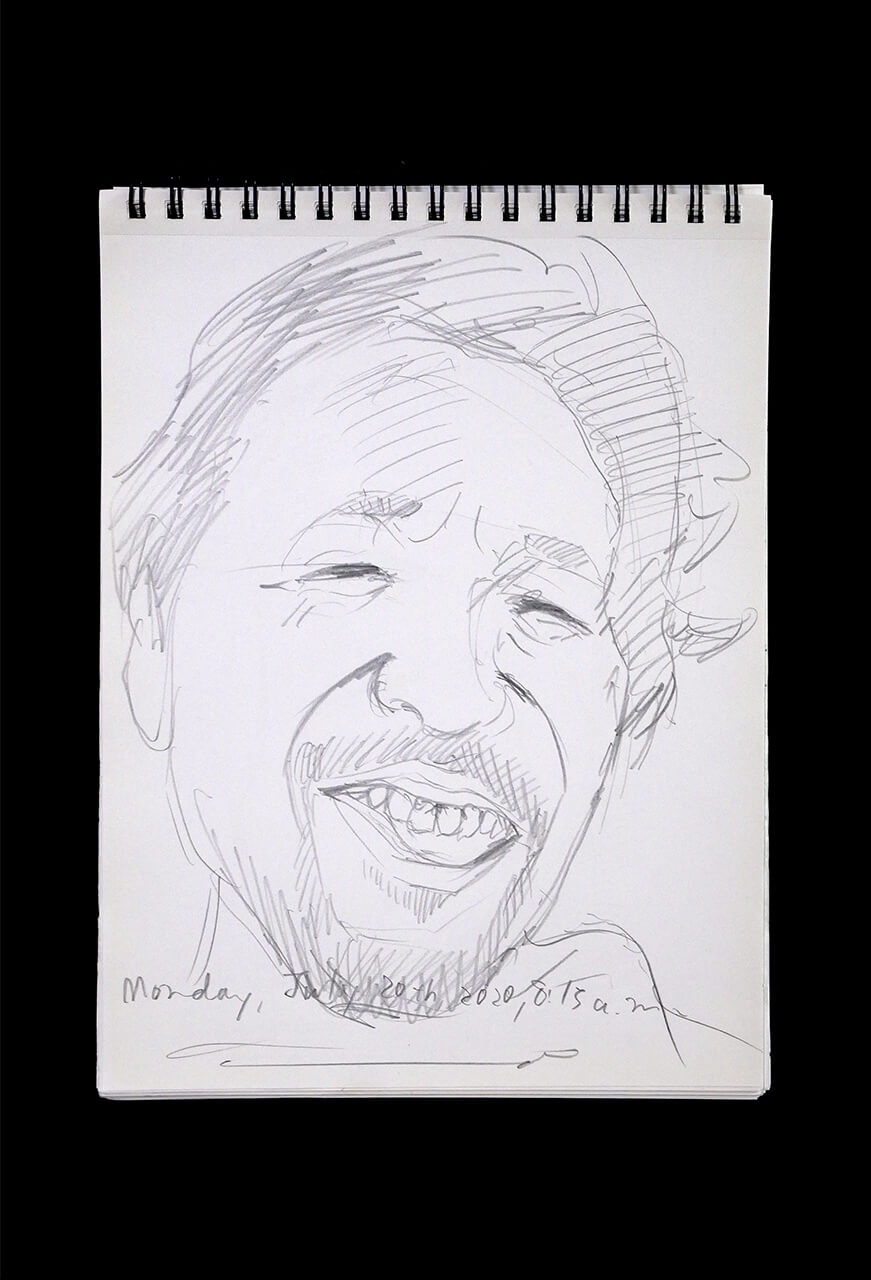 Monday, July 20th 2020, 8:15 a.m